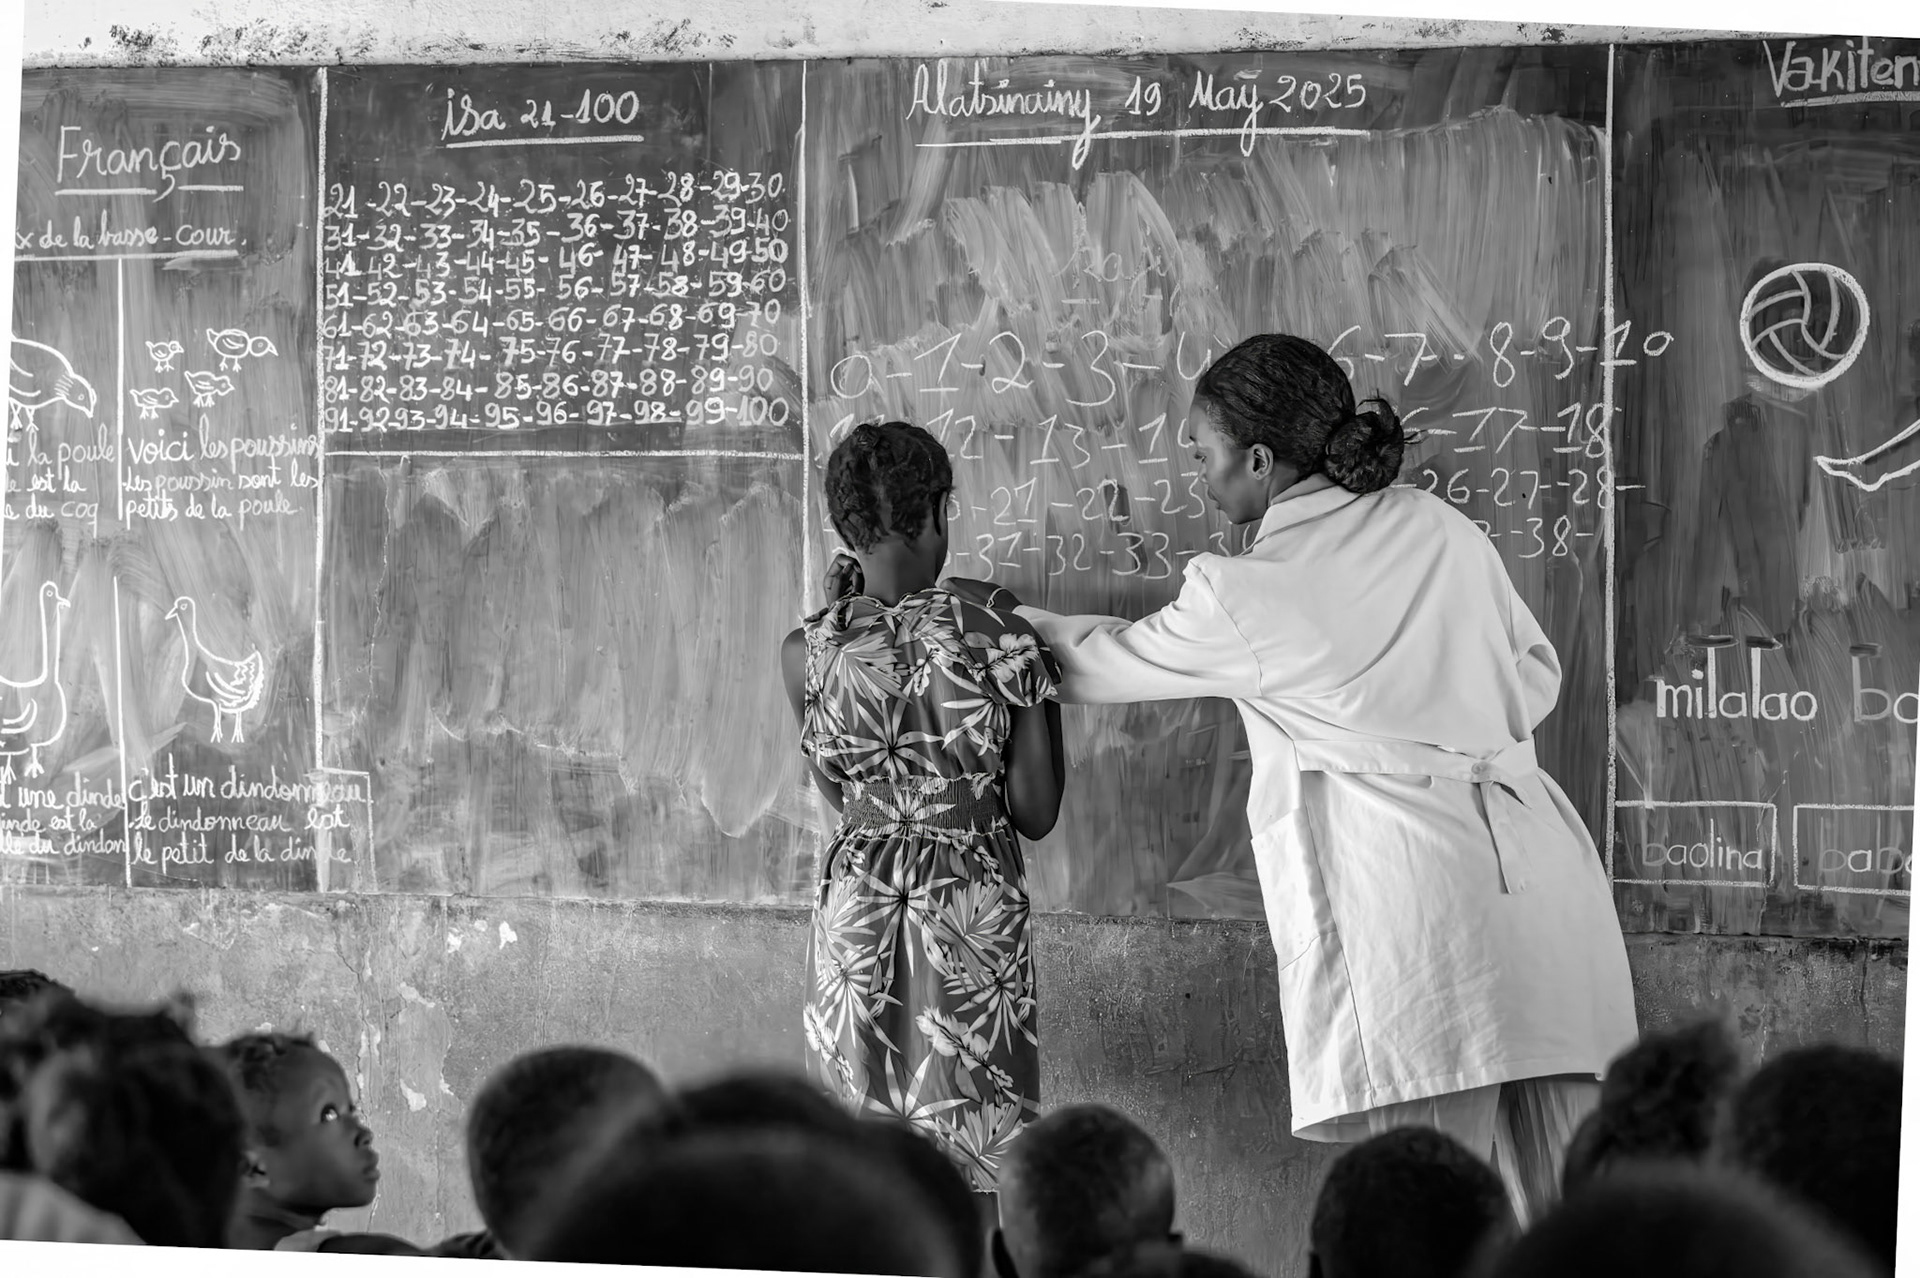 Français
x de la basse-cour.
la poule
est la
du coq
voici les poussins
les poussin sont les
petits de la poule.
une dinde
est la
du dindon
c'est un dindonneau
le dindonneau est
le petit de la dinde
isa 21-100
21-22-23-24-25-26-27-28-29-30
31-32-33-34-35-36-37-38-39-40
41-42-43-44-45-46-47-48-49-50
51-52-53-54-55-56-57-58-59-60
61-62-63-64-65-66-67-68-69-70
71-72-73-74-75-76-77-78-79-80
81-82-83-84-85-86-87-88-89-90
91-92-93-94-95-96-97-98-99-100
Alatsinainy 19 May 2025
0-1-2-3-4 6-7-8-9-10
12-13-1 -17-18
-21-22-23 -26-27-28-
-31-32-33-3 -38-
Vakiten
milalao ba
baolina